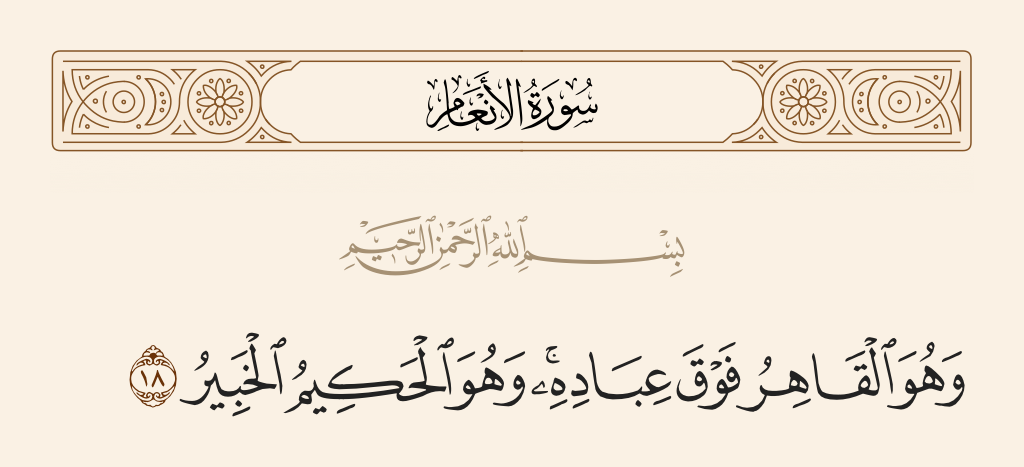 سُورَةُ الأَنْعَامِ
بِسْمِ ٱللَّهِ ٱلرَّحْمَٰنِ ٱلرَّحِيمِ
وَهُوَ ٱلْقَاهِرُ فَوْقَ عِبَادِهِۦ ۚ وَهُوَ ٱلْحَكِيمُ ٱلْخَبِيرُ ١٨